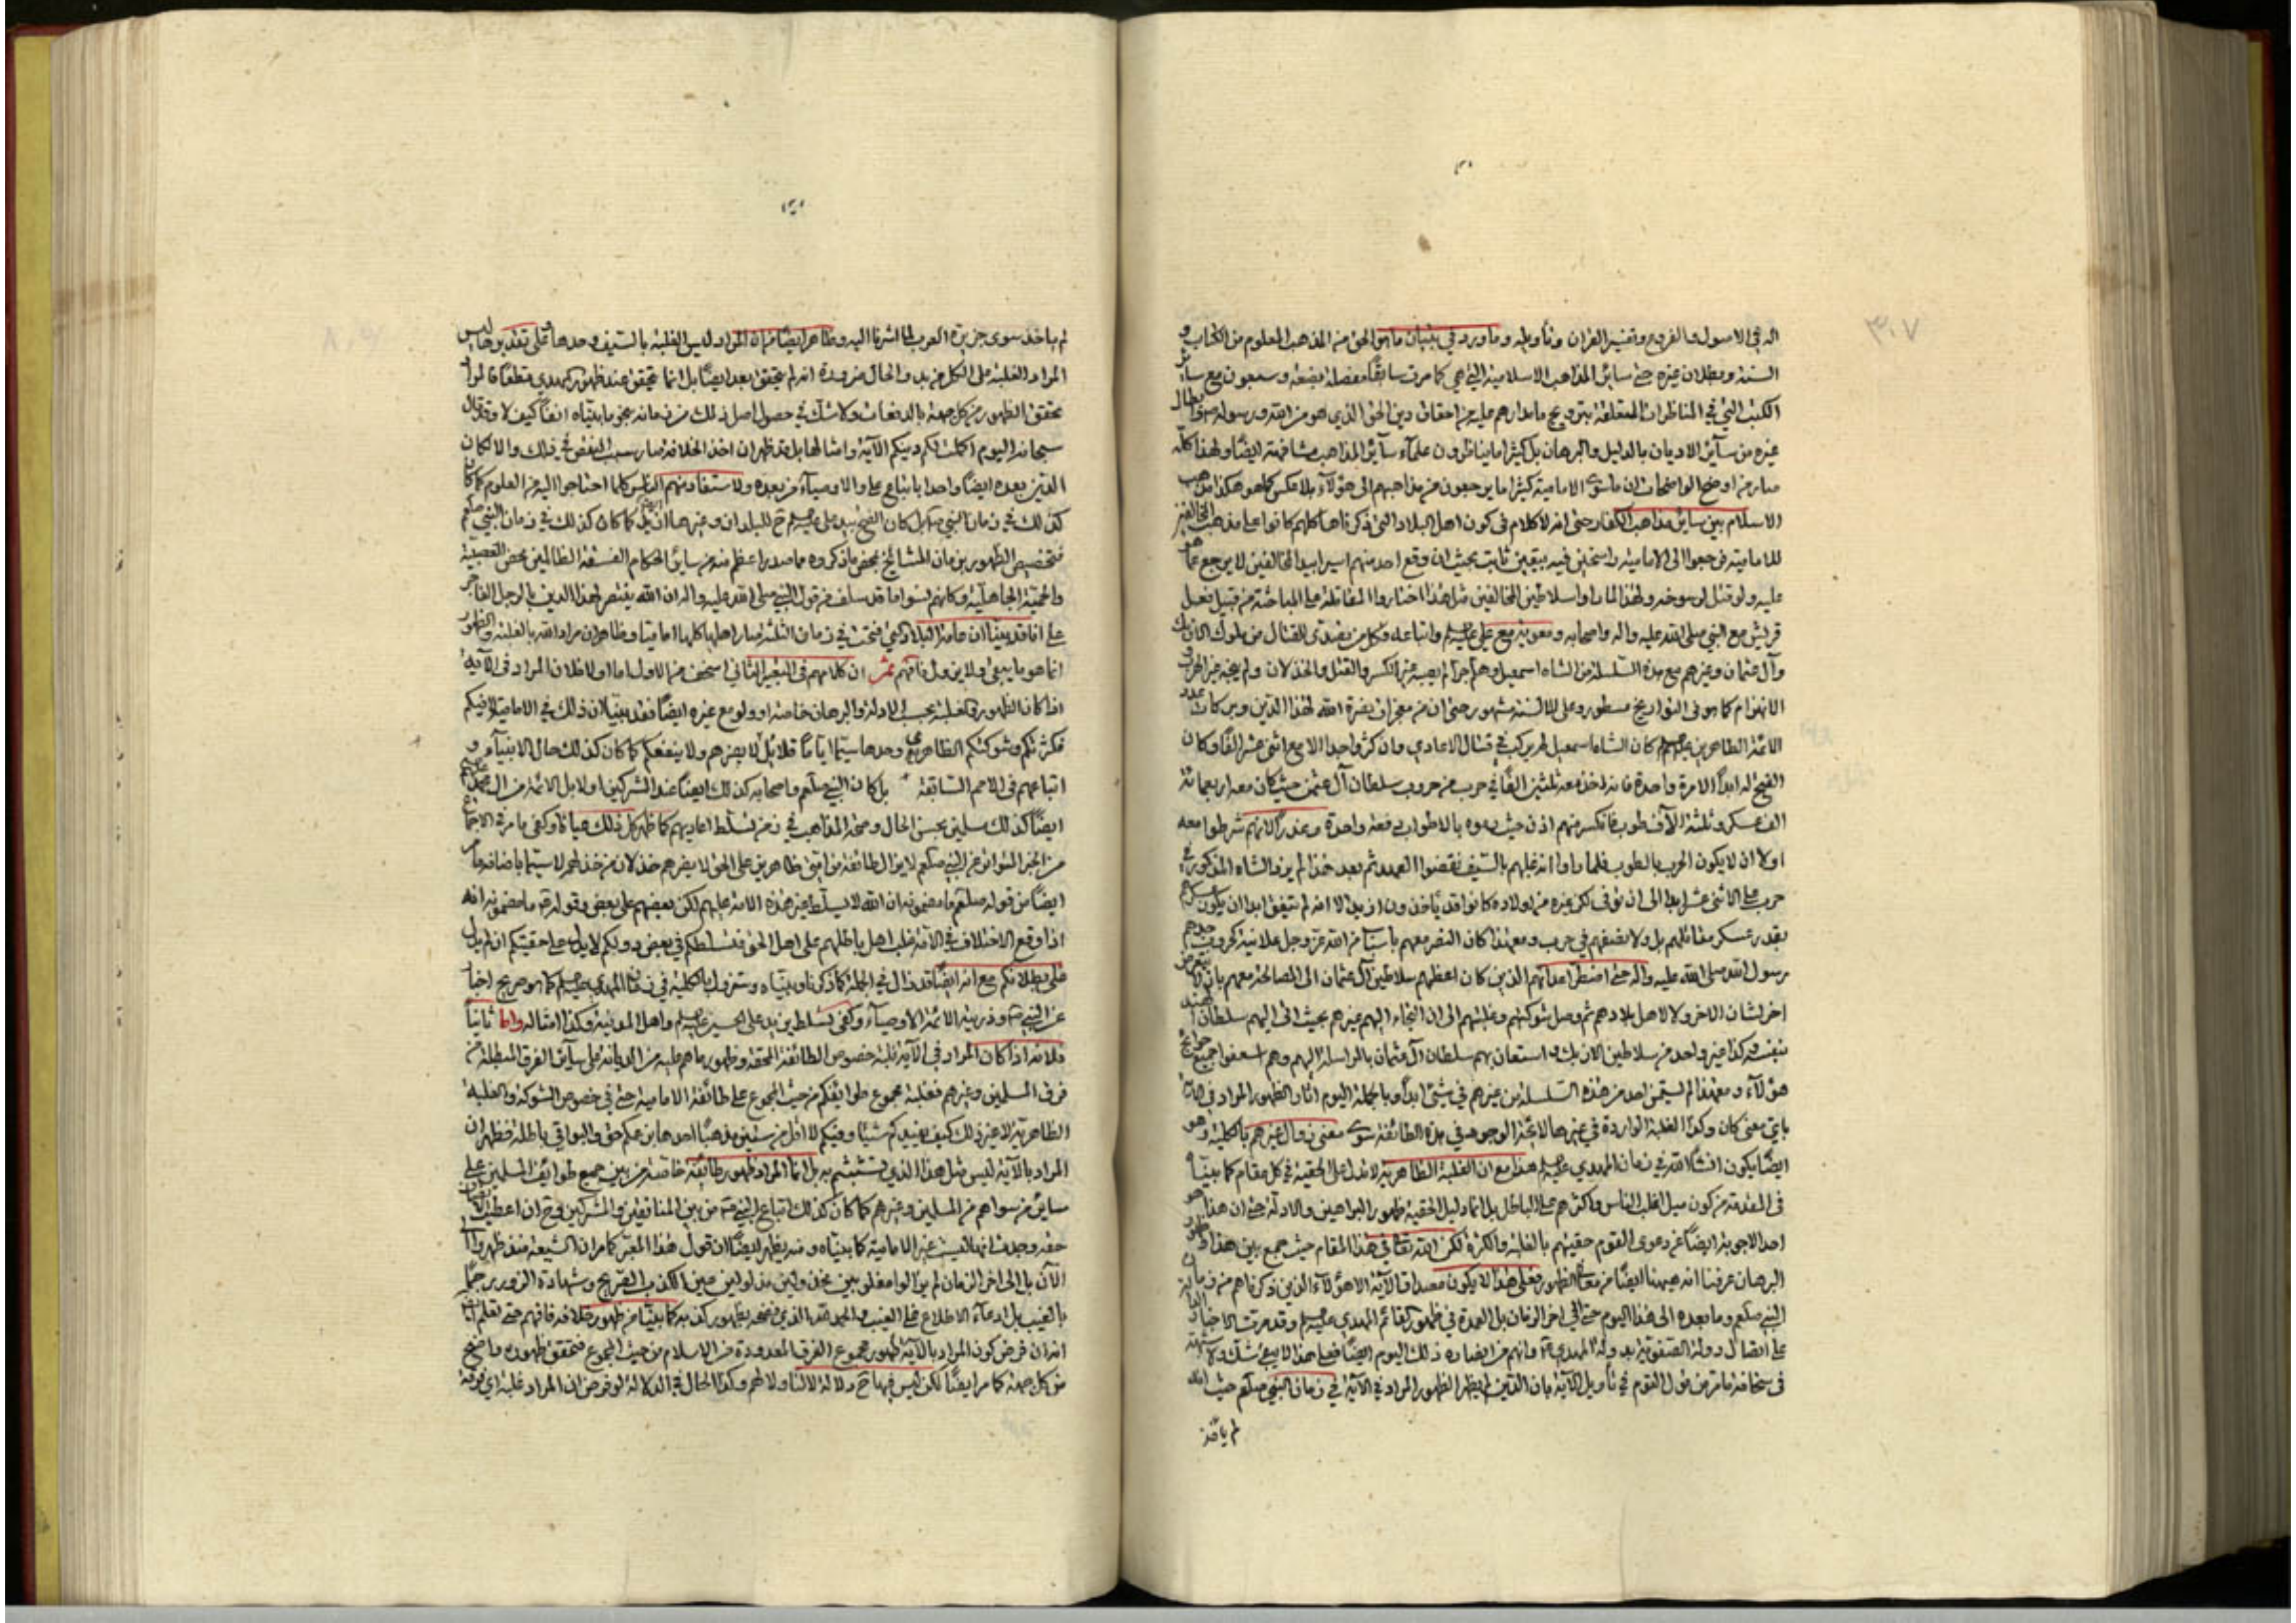 ٣٠٧
اله في الاصول والفروع وتفسير القران وتأويله وما ورد في بيان ماهو الحق من المذهب المعلوم من الكتاب و
السنة وبطلان غيره حتى سائر المذاهب الاسلامية التي هي كما مرت سابقًا مفصلة بضعة وسبعون مع سائر
الكتب التي في المناظرات المتعلقة بترويج ما مدارهم عليه من احقاق دين الحق الذي هو من الله ورسوله وابطال
غيره من سائر الاديان بالدليل والبرهان بل كثيرا ما يناظرون علمآء سآئر المذاهب مشافهة ايضًا ولهذا كله
صار من اوضح الواضحات ان ماسوى الامامية كثيرا ما يرجعون من مذاهبهم الى هؤلآء بلا عكس كما هو هكذا مذهب
الاسلام بين سائر مذاهب الكفار حتى انه لا كلام في كون اهل البلاد التي ذكرناها كلهم كانوا على مذهب المخالفين
للامامية فرجعوا الى الامامية راسخين فيه بيقين ثابت بحيث ان وقع احد منهم اسيرا بيد المخالفين لا يرجع عما هو
عليه ولو قتل لرسوخه ولهذا لما راوا سلاطين المخالفين مثل هذا اختاروا المقاتلة على المباحثة من قبيل فعل
قريش مع النبي صلى الله عليه واله واصحابه ومعوية مع علي عليه السلم واتباعه فكل من تصدى للقتال من ملوك الازبك
وآل عثمان وغيرهم مع هذه السلسلة من الشاه اسمعيل وهلم جرا لم يصبه غير الكسر والقتل والخذلان ولم يجد غير الحرب و
الانهزام كما هو في التواريخ مسطور وعلى الالسنة مشهور حتى ان من معجزات نصرة الله لهذا الدين وبركات عدد
الائمة الطاهرين عليهم السلم كان الشاه اسمعيل لم يركب في قتال الاعادي وان كثر واحدا الا مع اثنى عشر الفًا وكان
الفتح له ابدًا الا مرة واحدة فانه اخذ معه ثلثين الفًا في حرب من حروب سلطان آل عثمن حيث كان معه اربعمائة
الف عسكر وثلثة الآف طوب فانكسر منهم اذن حيث رموه بالاطواب دفعة واحدة وغدرًا لانهم شرطوا معه
اولا ان لا يكون الحرب بالطوب فلما راوا انه غلبهم بالسيف نقضوا العهد ثم بعد هذا لم يزد الشاه المذكور في
حرب على الاثنى عشر ابدا الى ان توفى لكن غيره من اولاده كانوا قد يأخذون ازيد الا انه لم يتفق ابدا ان يكون عسكرهم
بقدر عسكر مقاتلهم بل ولا بنصفهم في حرب ومع هذا كان النصر معهم باسباب من الله عز وجل علانية كحروب جدهم
رسول الله صلى الله عليه واله حتى اضطر اعدائهم الذين كان اعظمهم سلاطين آل عثمان الى المصالحة معهم بان لا يتعرض
احد لشان الاخر ولا لاهل بلادهم ثم وصل شوكتهم وغلبتهم الى ان التجاء اليهم غيرهم بحيث اتى اليهم سلطان الهند
بنفسه وكذا غير واحد من سلاطين الازبك واستعان بهم سلطان آل عثمان بالمراسلة اليهم وهم اسعفوا جميع حوائج
هؤلآء ومع هذا لم يستعن احد من هذه السلسلة من غيرهم في شيئ ابدًا وبالجملة اليوم اثار الظهور المراد في الاية
باي معنى كان وكذا الغلبة الواردة في غيرها لائحة الوجود في هذه الطائفة سوى معنى زوال غيرهم بالكلية وهو
ايضًا يكون انشآءالله في زمان المهدي عليه السلم هذا مع ان الغلبة الظاهرية لا تدل على الحقية في كل مقام كما بينا
في المقدمة من كون ميل اغلب الناس واكثرهم على الباطل بل انما دليل الحقية ظهور البراهين والادلة حتى ان هذا هو
احد الاجوبة ايضًا عن دعوى القوم حقيتهم بالغلبة والكثرة لكن الله تعالى في هذا المقام حيث جمع بين هذا و
البرهان عرفنا انه ههنا ايضًا من معنى الظهور فعلى هذا لا يكون مصداق الآية الا هؤلآء الذين ذكرناهم من زمان
النبي صلعم وما بعده الى هذا اليوم حتى الى اخر الزمان بل العمدة في ظهور القائم المهدي عليه السلم وقد مرت الاخبار
على اتصال دولة الصفوية بدولة المهدي ع وانهم من انصاره ذلك اليوم ايضًا فعلى هذا لا يبقى شك ولا شبهة
في سخافة ما مر من قول القوم في تأويل الآية بان الذين لم يظهر الظهور المراد في الآية في زمان النبي صلعم حيث انه
لم يأخذ
لم ياخذ سوى جزيرة العرب لما اشرنا اليه وظاهر ايضًا من ان المراد ليس الغلبة بالسيف وحدها وعلى تقدير
المراد الغلبة على الكل مرة بعد والحال من وجوه انه لم يتحقق بعد ايضًا بل انما يتحقق عند ظهور المهدي مطلقًا قالوا
تحقق الظهور من كل جهة بالدفعات ولا شك في حصول اصل ذلك من زمانه بنحو ما بيناه انفًا كيف لا وقد قال
سبحانه اليوم اكملت لكم دينكم الآية وامثالها بل قد ظهر ان اخذ الخلافة صار سبب النقص في ذلك والا لكان
الدين بعده ايضًا واحدا باتباع علي والاوصيآء من بعده ولاستفاد منهم الناس كلما احتاجوا اليه من العلوم كما كان
كذلك في زمان النبي صلعم بل كان الفتح بيد علي عليه السلم ح للبلدان وغيرها كما كان كذلك في زمان النبي صلعم
فتخصيص الظهور بزمان المشائخ بمحض ما ذكروه مما صدر اعظم منه من سائر الحكام الفسقة الظالمين محض التعصبية
والحمية الجاهلية وكانهم نسوا ما قد سلف من قول النبي صلى الله عليه واله ان الله ينصر لهذا الدين بالرجل الفاجر
على انا قد بينا ان عامة البلاد التي فتحت في زمان الثلثة صار اهلها كلها امامية وظاهر ان مراد الله بالغلبة والظهور
انما هو ما يبقى ولا يزول فافهم ثم ان كلامهم في التعبير الثاني اسخف من الاول اما اولا فلان المراد في الآية
اذا كان الظهور والغلبة بحسب الادلة والبرهان خاصة او ولو مع غيره ايضًا فقد بينا ان ذلك في الامامية لا فيكم
فكثرتكم وشوكتكم الظاهرية وحدها سيما ايامًا قلائل لا يضرهم ولا ينفعكم كما كان كذلك حال الانبيآء و
اتباعهم في الامم السابقة بل كان النبي صلعم واصحابه كذلك ايضًا عند المشركين اولا بل الائمة من آل محمد عليهم السلم
ايضًا كذلك سلبين بحسن الحال وصحة المذاهب في زمن تسلط اعاديهم كما ظهر كل ذلك عيانا وكفى ما مر في الاجماع
من الخبر المتواتر عن النبي صلعم لا يزال طائفة من امتي ظاهرين على الحق لا يضرهم خذلان من خذلهم لا سيما باضافة ما مر
ايضًا من قوله صلعم ما مضمونه ان الله لا يسلط غير هذه الامة عليهم لكن بعضهم على بعض وقوله ص ما مضمونه انه
اذا وقع الاختلاف في الامة غلب اهل باطلهم على اهل الحق فتسلطكم في بعض دولكم لا يدل على حقيتكم ان لم يدل
على بطلانكم مع انه ايضًا قد زال في الجملة كما ذكرنا وبيناه وستزول بالكلية في زمان المهدي عليه السلم كما هو صريح اخبار
عن النبي ص وذريته الائمة الاوصيآء وكفى تسلط يزيد على الحسين عليه السلم واهل المدينة وكذا امثاله واما ثانيًا
فلانه اذا كان المراد في الآية غلبة خصوص الطائفة المحقة وظهور ما هم عليه من الديانة على سآئر الفرق المبطلة من
فرق المسلمين وغيرهم فغلبة مجموع طوائفكم من حيث المجموع على طائفة الامامية حتى في خصوص الشوكة والغلبة
الظاهرية لا غير ذلك كيف يفيدكم شيئًا وفيكم لا اقل من ستين مذهبًا احدها بزعمكم حق والبواقي باطلة فظهر ان
المراد بالآية ليس مثل هذا الذي تشبثتم به بل انما المراد ظهور طائفة خاصة من بين جميع طوائف المسلمين على
سائر من سواهم من المسلمين وغيرهم كما كان كذلك اتباع النبي ص من بين المنافقين والمشركين فح ان اعطيت الاية
حقه وجدت انها ليست غير الامامية كما بيناه ومنه يظهر ايضًا ان قول هذا المعبر كما مر ان الشيعة منذ ظهروا
الآن بل الى اخر الزمان لم يزالوا مغلوبين مخزولين مذلولين عين الكذب الصريح وشهادة الزور رجمًا
بالغيب بل ادعآء الاطلاع على الغيب والحمد لله الذي فضحه بظهور كذبه كما بينا من ظهور خلافه فافهم حتى تعلم ايضًا
انه ان فرض كون المراد بالآية ظهور مجموع الفرق المعدودة من الاسلام من حيث المجموع فتحقق ظهوره واضح
من كل جهة كما مر ايضًا لكن ليس فيها ح دلالة لا لنا ولا لهم وكذا الحال في الدلالة لو فرض ان المراد غلبة اي فرقة